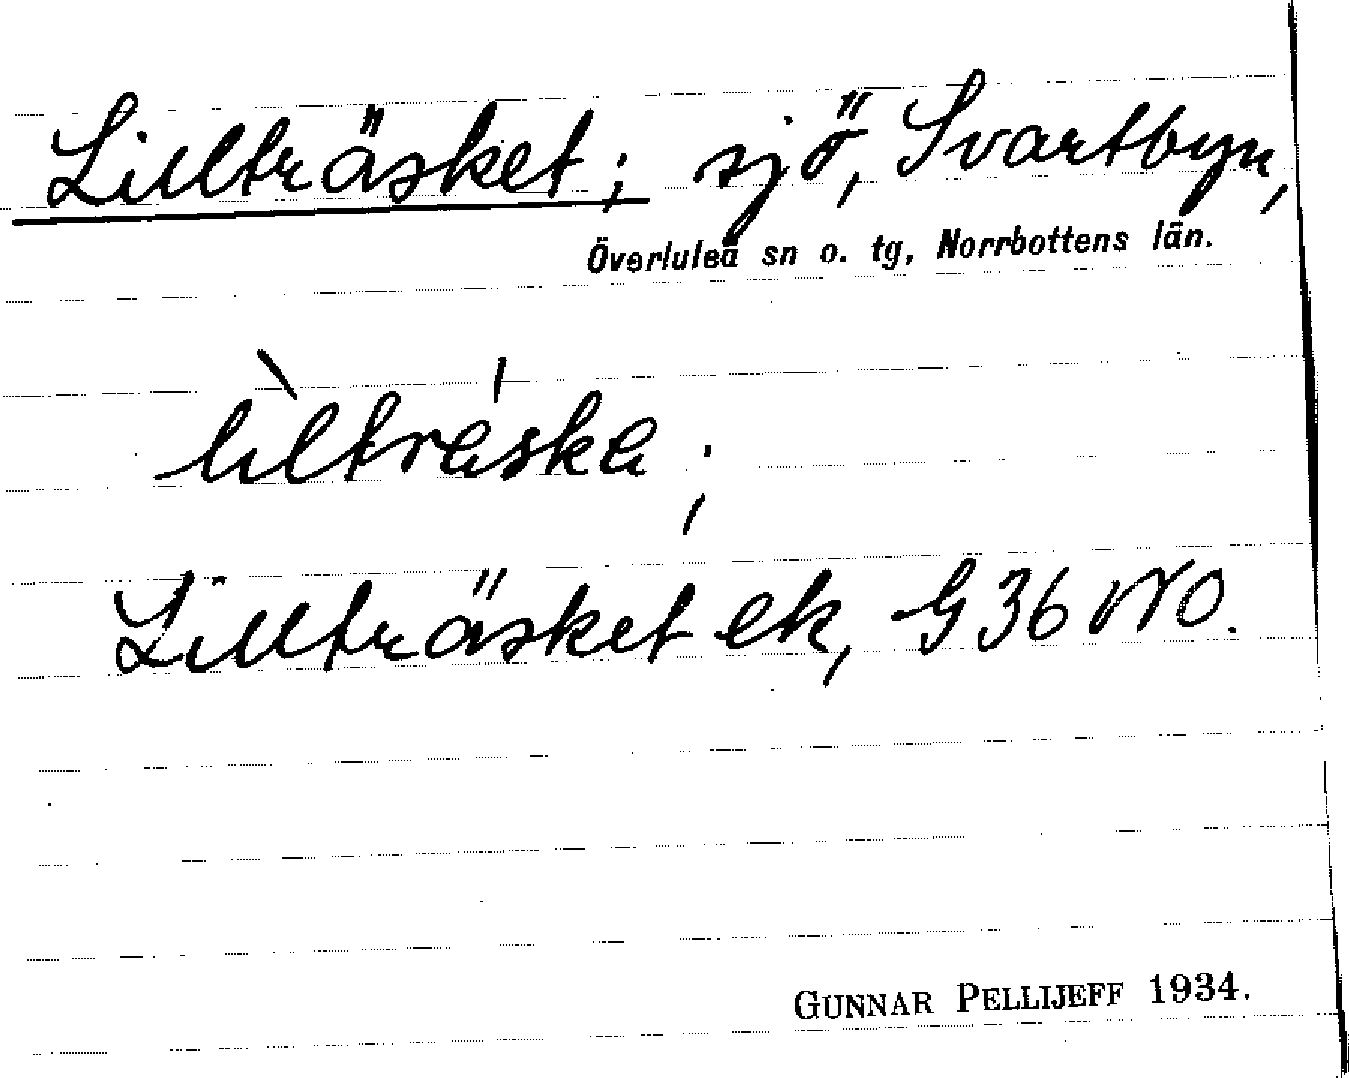 Lillträsket; sjö, Svartbyn,
Överluleå sn o. tg, Norrbottens län.
lìltráska;
Lillträsket ek, G 36 NO.
GUNNAR PELLIJEFF 1934.